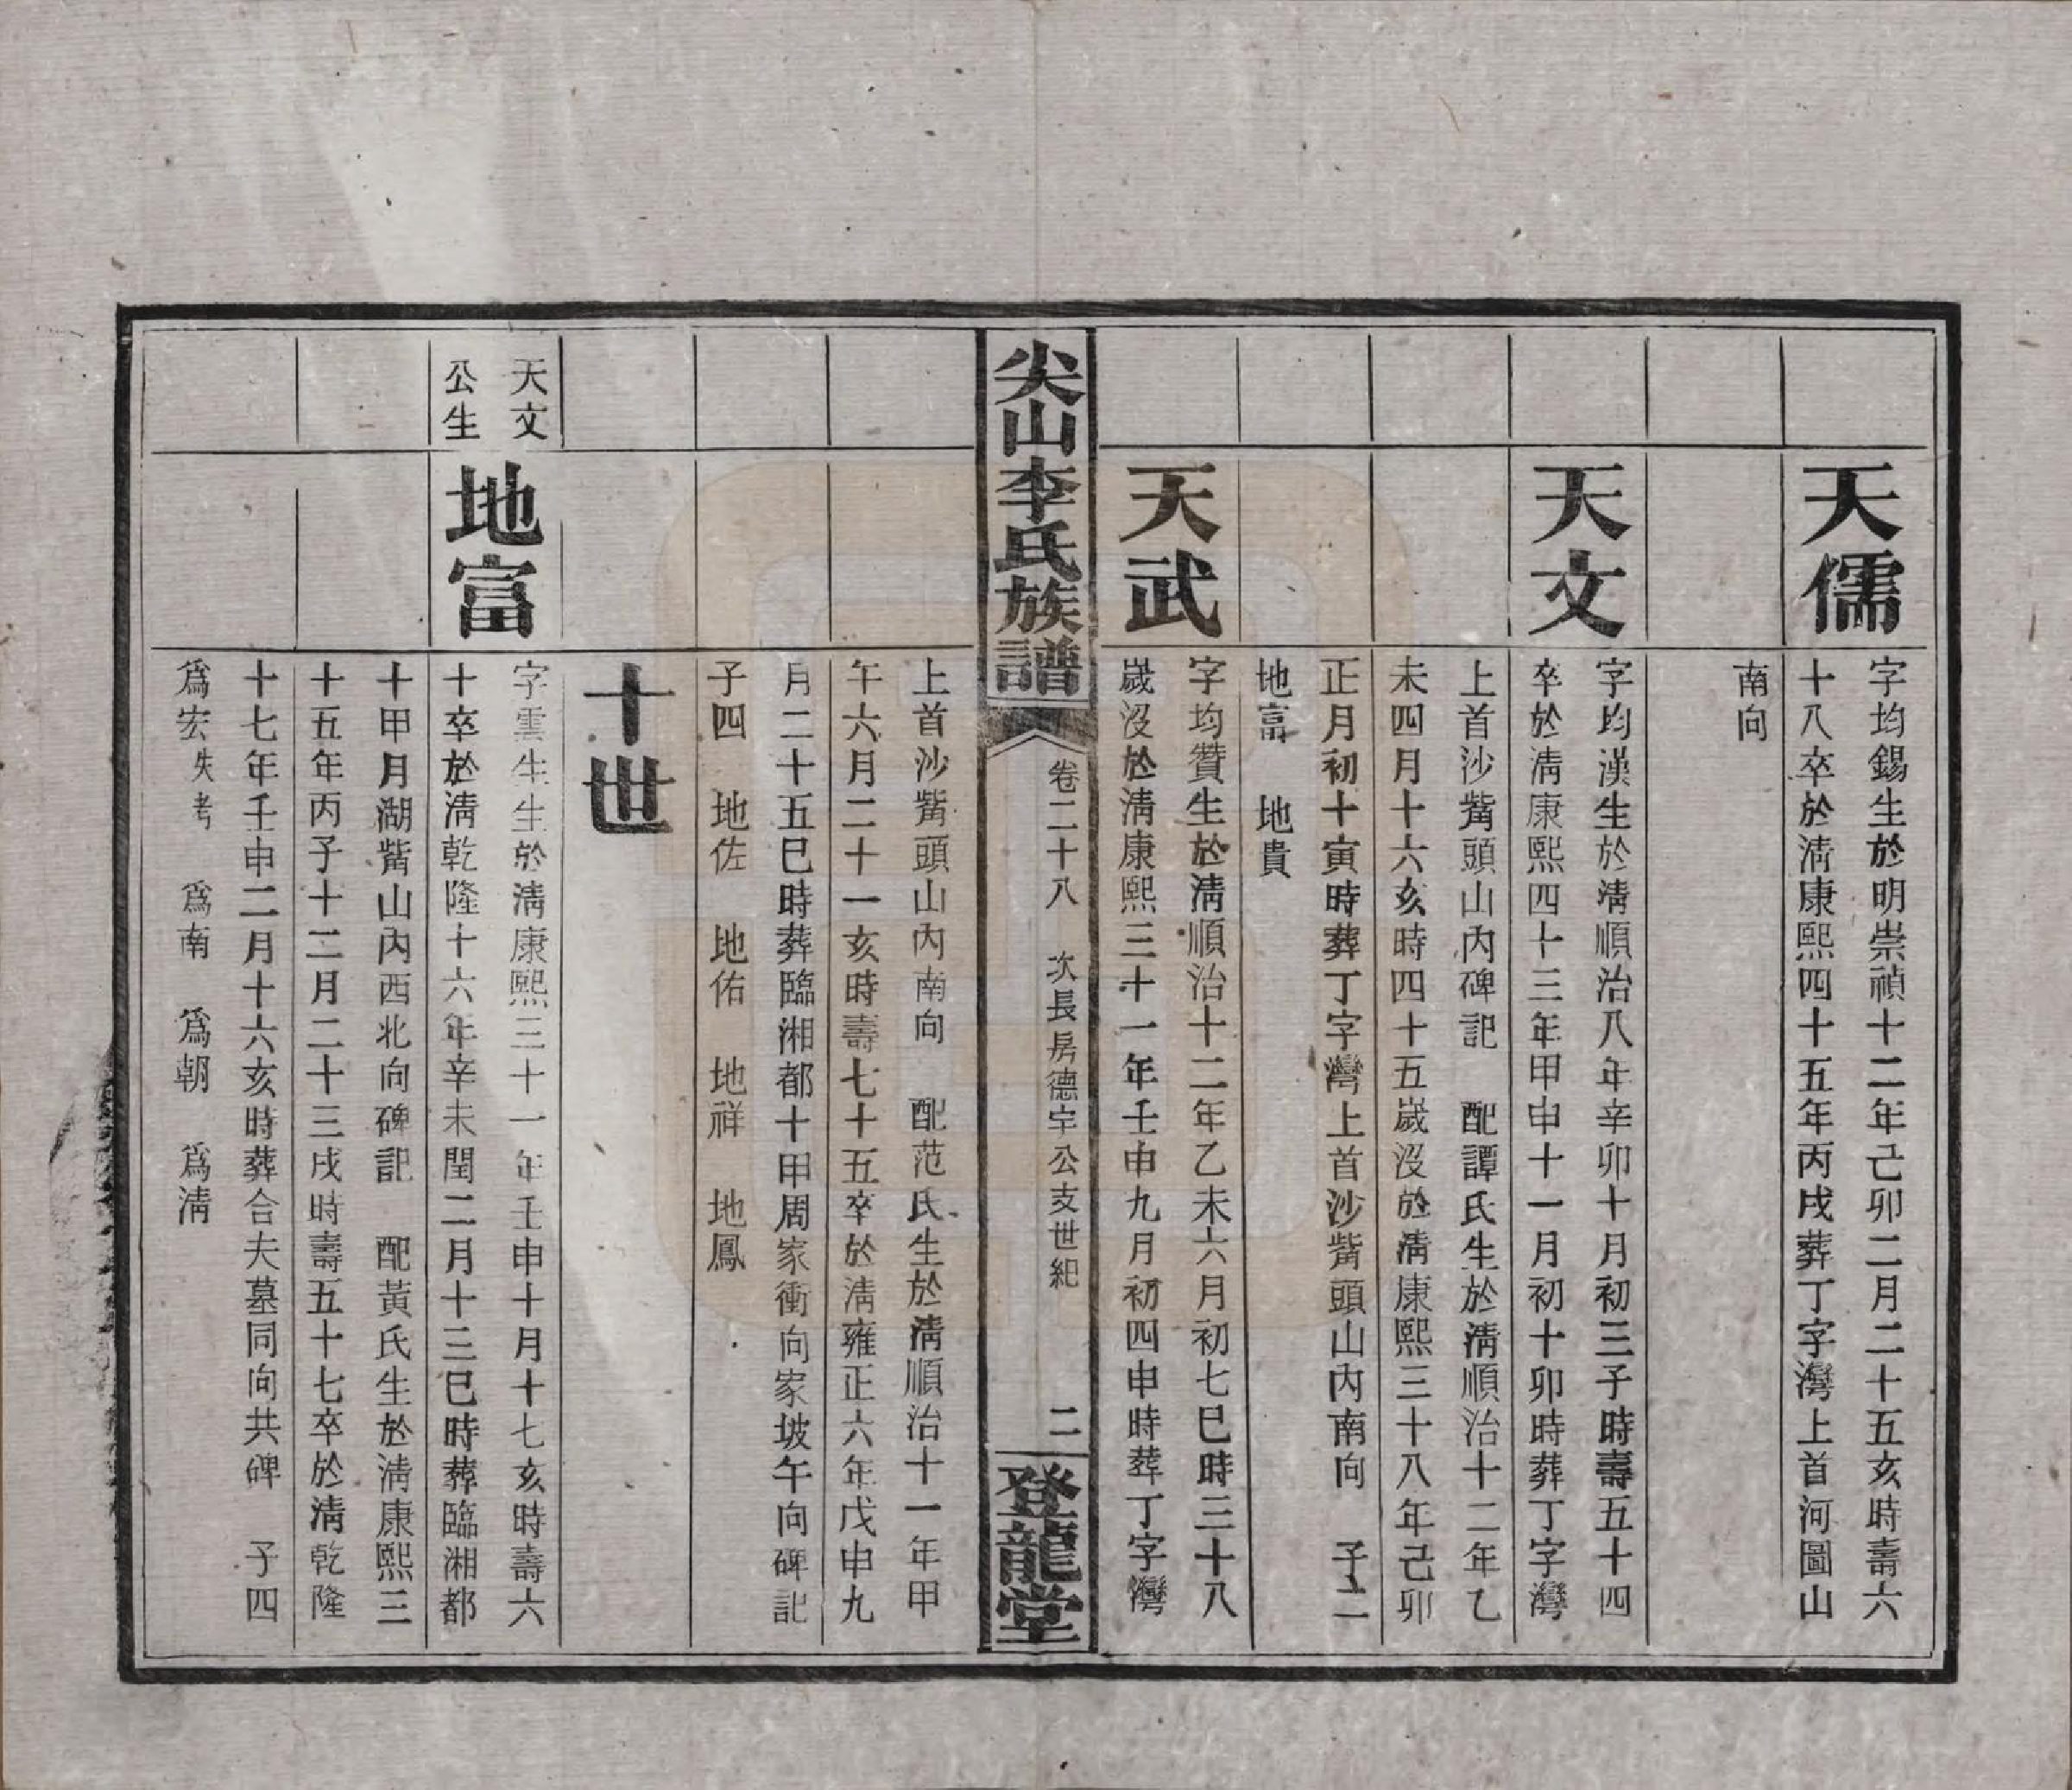 天儒
字均錫生於明崇禎十二年己卯二月二十五亥時壽六
十八卒於淸康熙四十五年丙戌葬丁字灣上首河圖山
南向
天文
字均漢生於淸順治八年辛卯十月初三子時壽五十四
卒於淸康熙四十三年甲申十一月初十卯時葬丁字灣
上首沙觜頭山內碑記　配譚氏生於淸順治十二年乙
未四月十六亥時四十五歲沒於淸康熙三十八年己卯
正月初十寅時葬丁字灣上首沙觜頭山內南向　子二
地富　地貴
天武
字均贊生於淸順治十二年乙未六月初七巳時三十八
歲沒於淸康熙三十一年壬申九月初四申時葬丁字灣
尖山李氏族譜
卷二十八　次長房德宇公支世紀
二
登龍堂
上首沙觜頭山內南向　配范氏生於淸順治十一年甲
午六月二十一亥時壽七十五卒於淸雍正六年戊申九
月二十五巳時葬臨湘都十甲周家衝向家坡午向碑記
子四　地佐　地佑　地祥　地鳳
十世
天文
公生
地富
字雲生生於淸康熙三十一年壬申十月十七亥時壽六
十卒於淸乾隆十六年辛未閏二月十三巳時葬臨湘都
十甲月湖觜山內西北向碑記　配黃氏生於淸康熙三
十五年丙子十二月二十三戌時壽五十七卒於淸乾隆
十七年壬申二月十六亥時葬合夫墓同向共碑　子四
爲宏失考　爲南　爲朝　爲淸